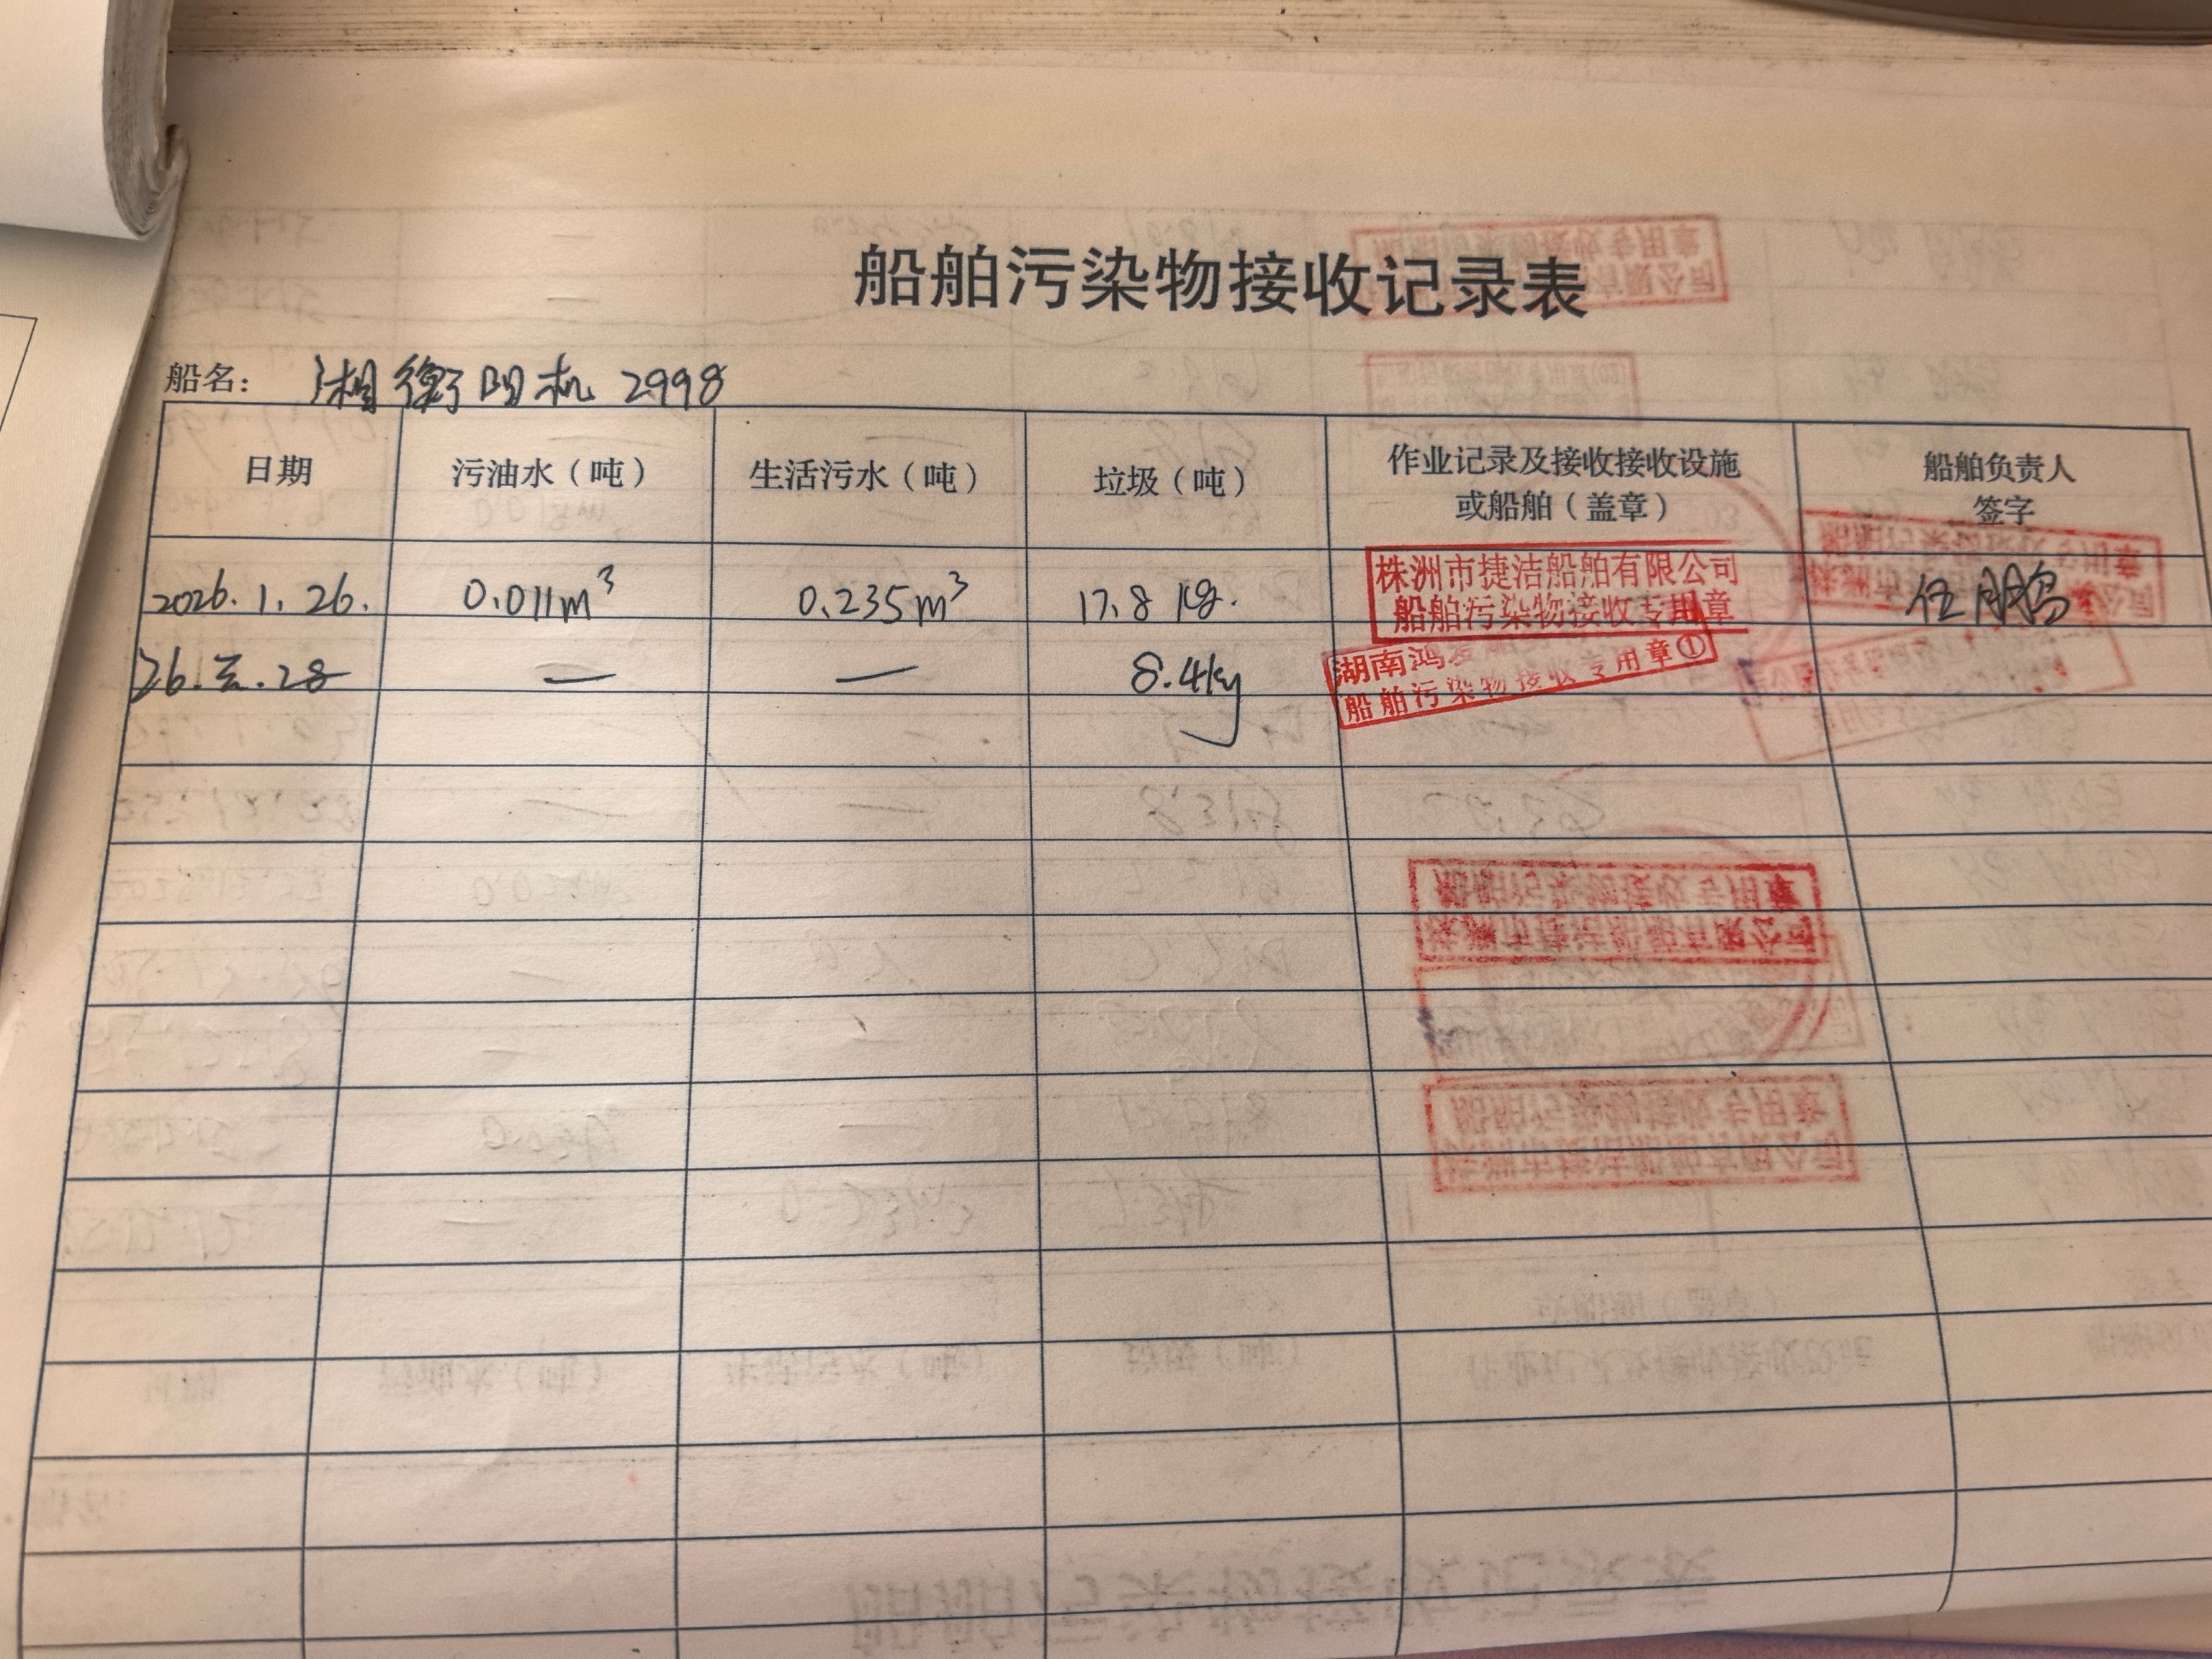 船舶污染物接收记录表
船名： 湘衡阳机 2998
日期 污油水（吨） 生活污水（吨） 垃圾（吨） 作业记录及接收接收设施或船舶（盖章） 船舶负责人签字
2026.1.26. 0.011m³ 0.235m³ 17.8 kg. 任鹏
株洲市捷洁船舶有限公司
船舶污染物接收专用章
26.元.28 — — 8.4kg
湖南鸿
船舶污染物接收专用章①